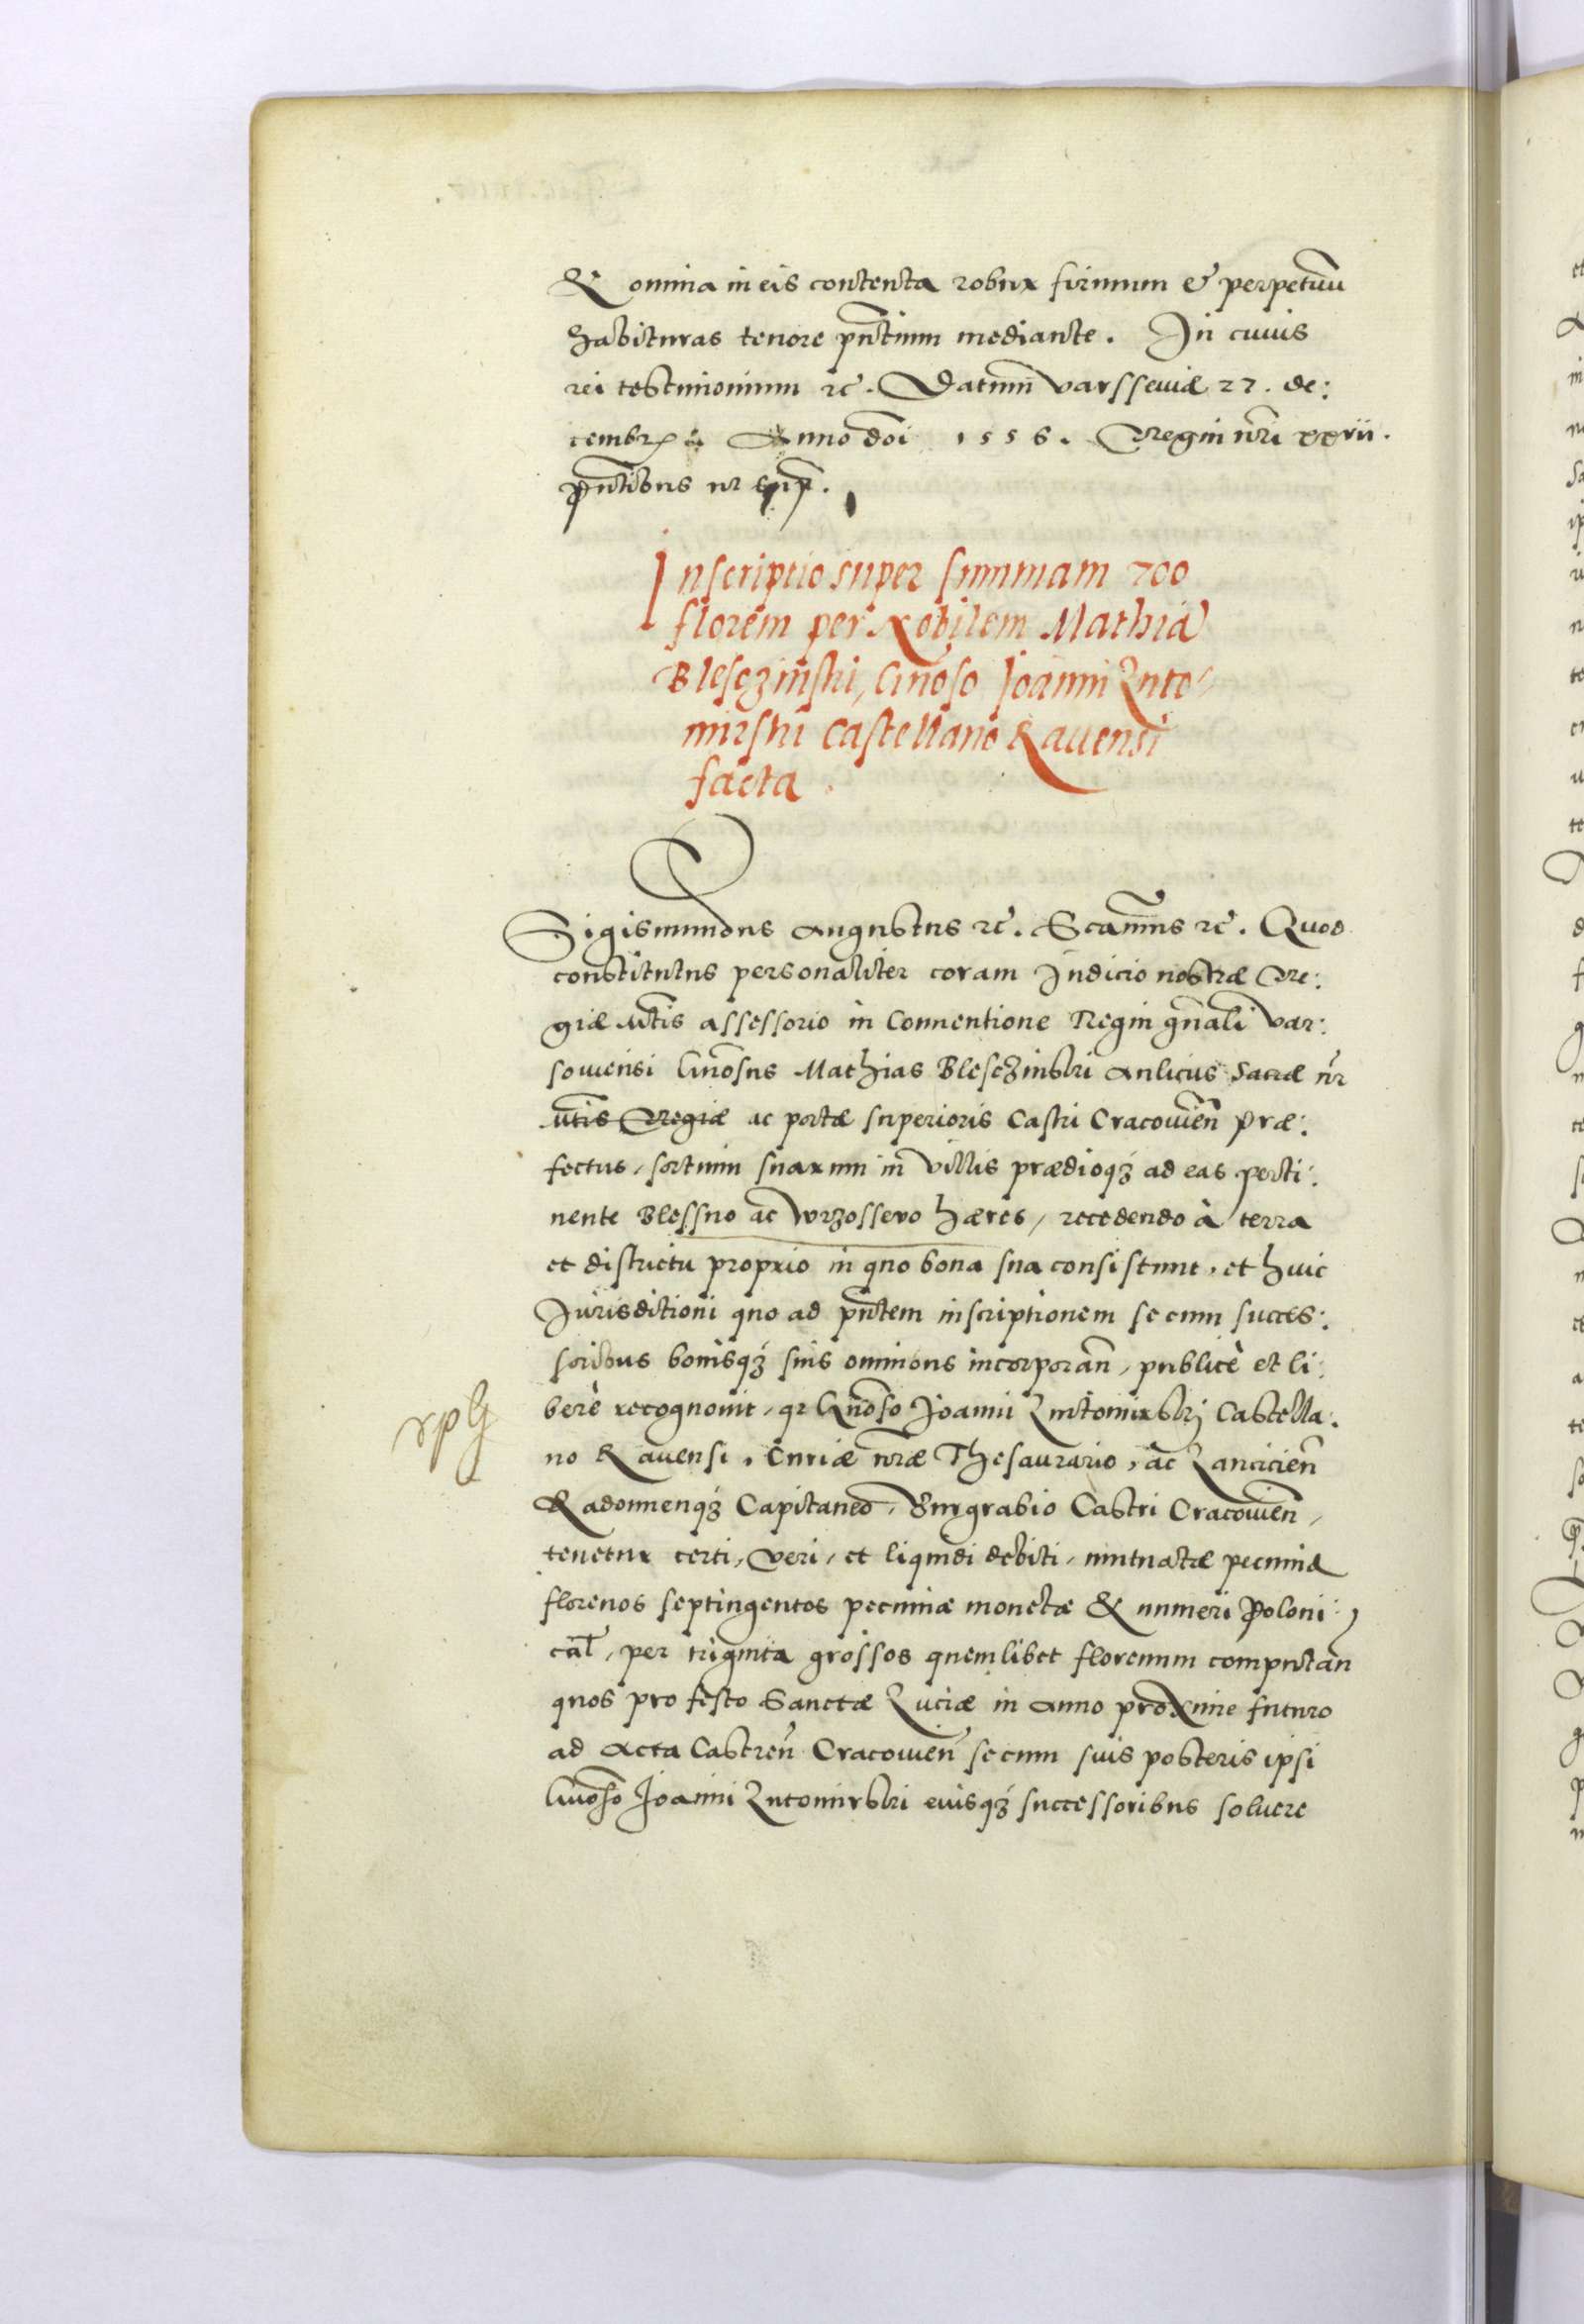 & omnia in eis contenta robur firmum & perpetuũ
habituras tenore pñtium mediante. In cuius
rei testimonium ꝛc. Datum varsseuiæ 27. de:
cembrꝭ Anno dñi 1556. Regni nr̃i xxvii.
pñtibus ut supꝛ̃.
Inscriptio super summam 700
floren̄ per Nobilem Mathiā
Blesczinski, Gñoso Joanni Luto/
mirski Castellano Rauensi
facta.
Sigismundus Augustus ꝛc. Scamus ꝛc. Quod
constitutus personaliter coram Judicio nostræ Re:
giæ Mtis assessorio in Conuentione Regni gñali Var:
souiensi Gñosus Mathias Blesczinski Aulicus Sacræ nr̃
Mtis Regiæ ac portæ superioris Castri Cracouieñ Præ:
fectus, sortium suarum in villis prædioqꝫ ad eas perti:
nente Blessno ac Wrzossewo hæres, recedendo à terra
et districtu proprio in quo bona sua consistunt, et huic
Jurisditioni quo ad pñtem inscriptionem se cum succes:
soribus bonisqꝫ suis omnibus incorporañ, publicè et li:
berè recognouit, qꝛ Gñoso Joanni Lutomirskj Castella:
rplG
no Rauensi, Curiæ nræ Thesaurario, ac Lancicieñ
Radomenqꝫ Capitaneo, Burgrabio Castri Cracouieñ,
tenetur certi, veri, et liquidi debiti, mutuatæ pecuniæ
florenos septingentos pecuniæ monetæ & numeri Poloni:
cal̃, per triginta grossos quemlibet florenum computañ
quos pro festo Sanctæ Luciæ in Anno proxime futuro
ad Acta Castreñ Cracouieñ se cum suis posteris ipsi
Gñoso Joanni Lutomirski eiusqꝫ successoribus soluere